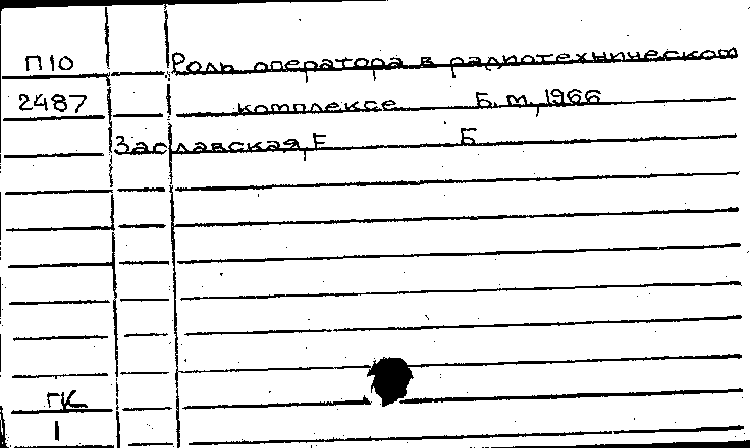 П10 Роль оператора в радиотехническом
2487 комплексе Б.м, 1966
Заславская, Е Б
ГК
1